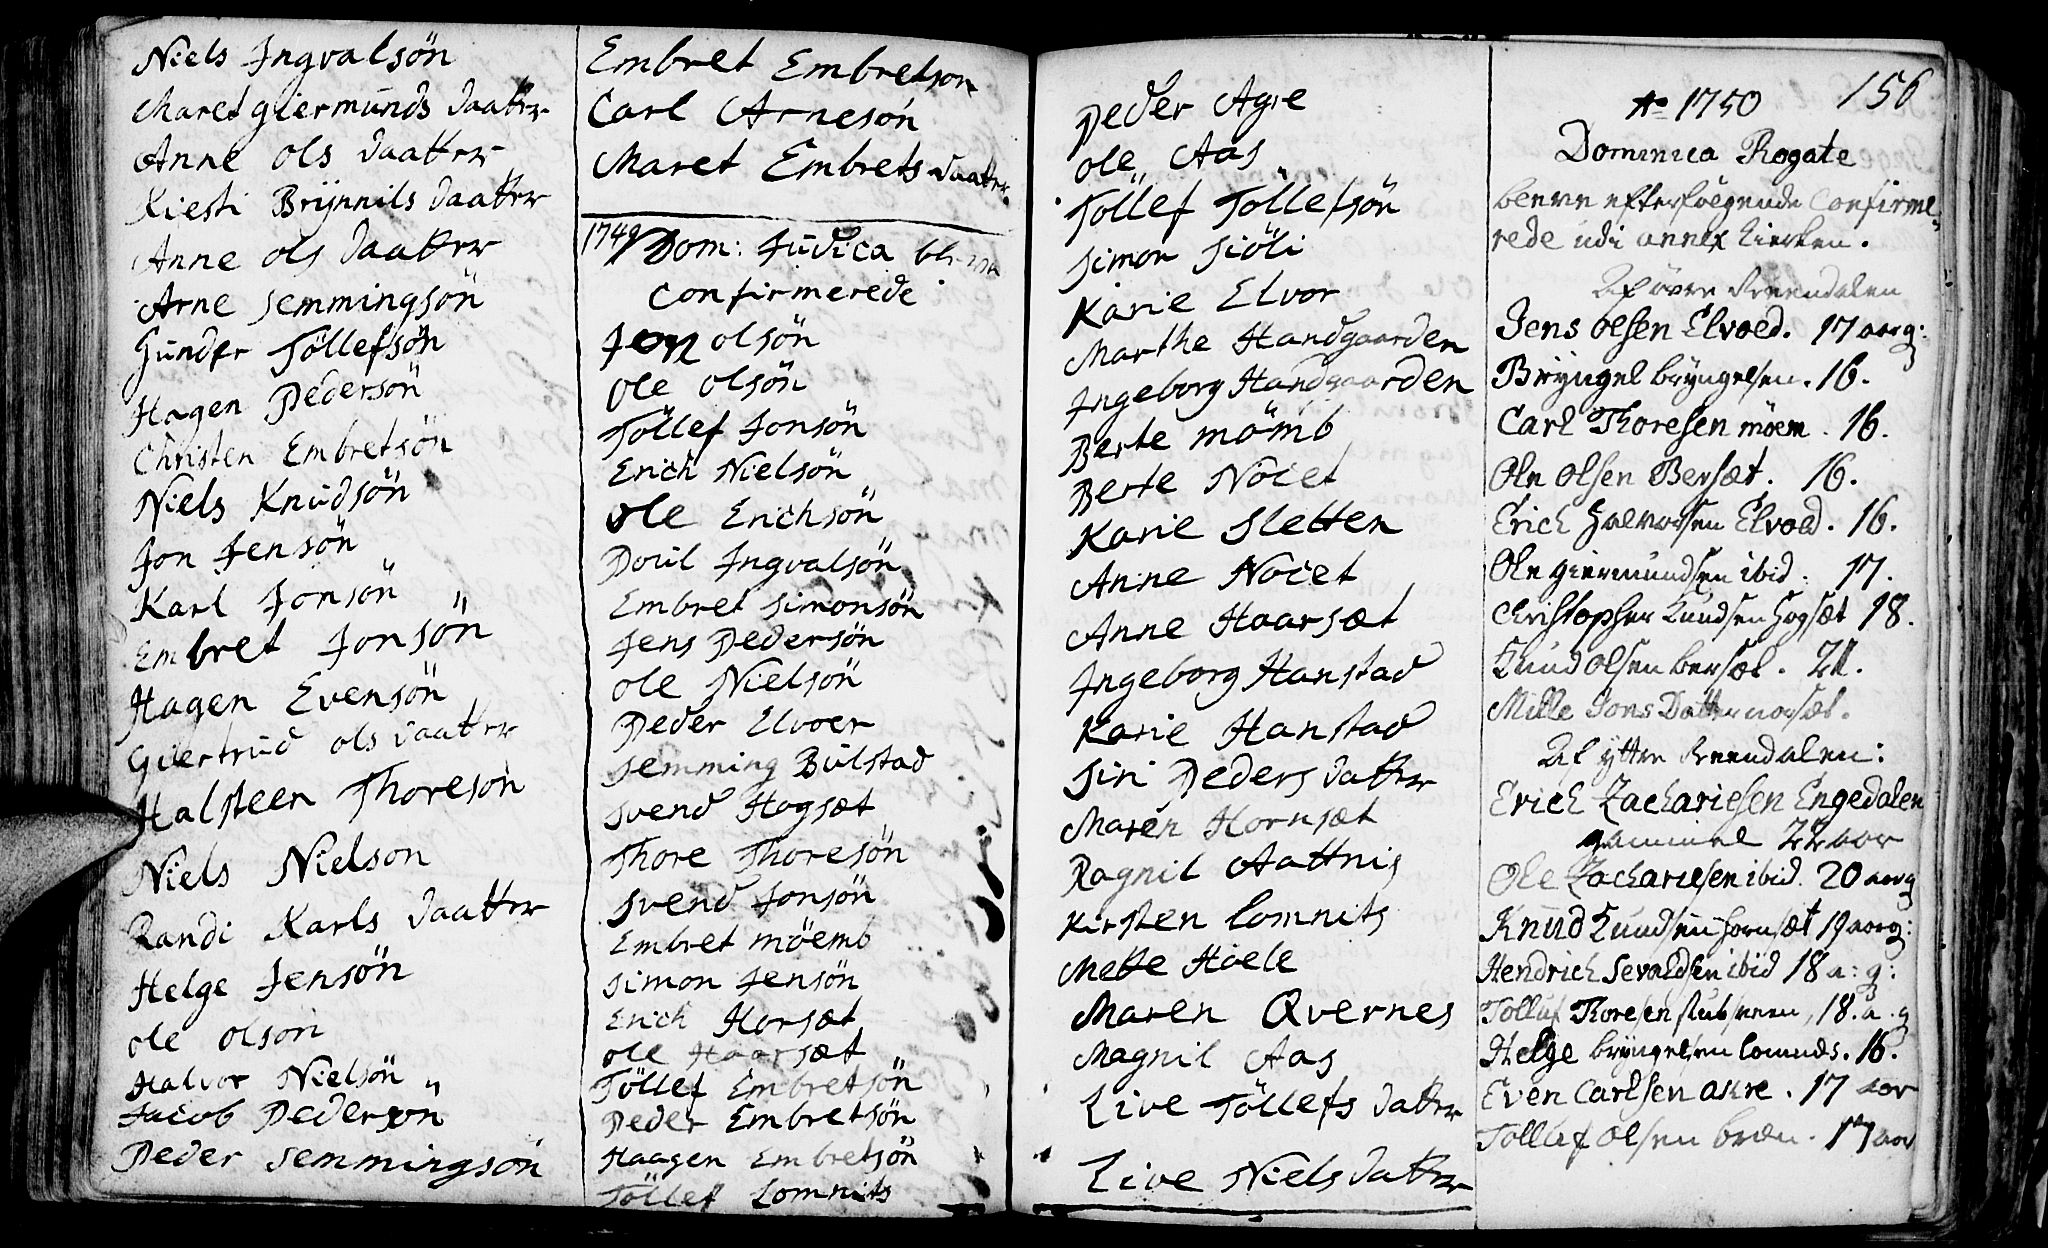 Niels Ingvalsön
Maret Giermunds daatter
Anne ols daatter
Kiesti Brÿnnils daatter
Anne ols daatter
Arne Semmingsön
Gunder Töllefsön
Hagen Pedersön
Christen Embretsön
Niels Knudsön
Jon Jensön
Karl Jonsön
Embret Jonsön
Hagen Evensön
Giertrud ols daatter
Halsteen Thoreson
Niels Nielson
Randi Karls daatter
Helge Jensön
ole olson
Halvor Nielsön
Jacob Pedersön
Peder Semmingsön
Embret Embretson
Carl Arnesön
Maret Embrets daatter
1749 Dom: Judica
Confirmerede
Jon olsön
ole olsön
Töllef Jonsön
Erich Nielsön
ole Erichsön
Poul Ingvalsön
Embret Simonsön
Jens Pedersön
ole Nielsön
Peder Elvoer
Semming Bulstad
Svend Hogsæt
Thore Thoresön
Svend Jonsön
Embret möemb
Simon Jensön
Erich Horsæt
ole Haarsæt
Töllef Embretsön
Peder Embretsön
Haagen Embretsön
Töllef Lomnits
Peder Agre
ole Aas
Töllef Töllefsön
Simon Siöli
Karie Elvor
Marthe Handgaarden
Ingeborg Handgaarden
Berte mömb
Berte Nöcet
Karie Sletten
Anne Nöcet
Anne Haarsæt
Ingeborg Hanstad
Karie Hanstad
Siri Peders datter
Maren Hornsæt
Ragnil Aattnis
Kirsten Lomnits
Mette Hoele
Maren Qvernes
Magnil Aas
Live Töllefs datter
Live Niels datter
156
Ao 1750
Dominica Rogate
bleven efterfölgende Confirme-
rede udi annex kierken.
Af öfre Reendalen
Jens olsen Elvoed. 17 aarg:
Brÿngel brÿngelsen. 16.
Carl Thoresen möem. 16.
Ole olsen Bersæt. 16.
Erich Halvorsen Elvoed. 16.
Ole giermundsen ibid: 17.
Christopher Knudsen Hogsæt 18.
Knud olsen bersæt. 21.
Mille Jons Datter
Af ytter Reendalen:
Erich Zachariesen Engedalen
gammel 22 aar
Ole Zachariesen ibid. 20 aarg
Knud Knudsen Hornsæt 19 aarg:
Hendrich Sevaldsen ibid 18 a: g:
Tolluf Thoresen stubsveen, 18. a. g
Helge brÿngelsen lomnæs. 16.
Even Carlsen akre. 17 aar
Tollef olsen bræn. 17 aar